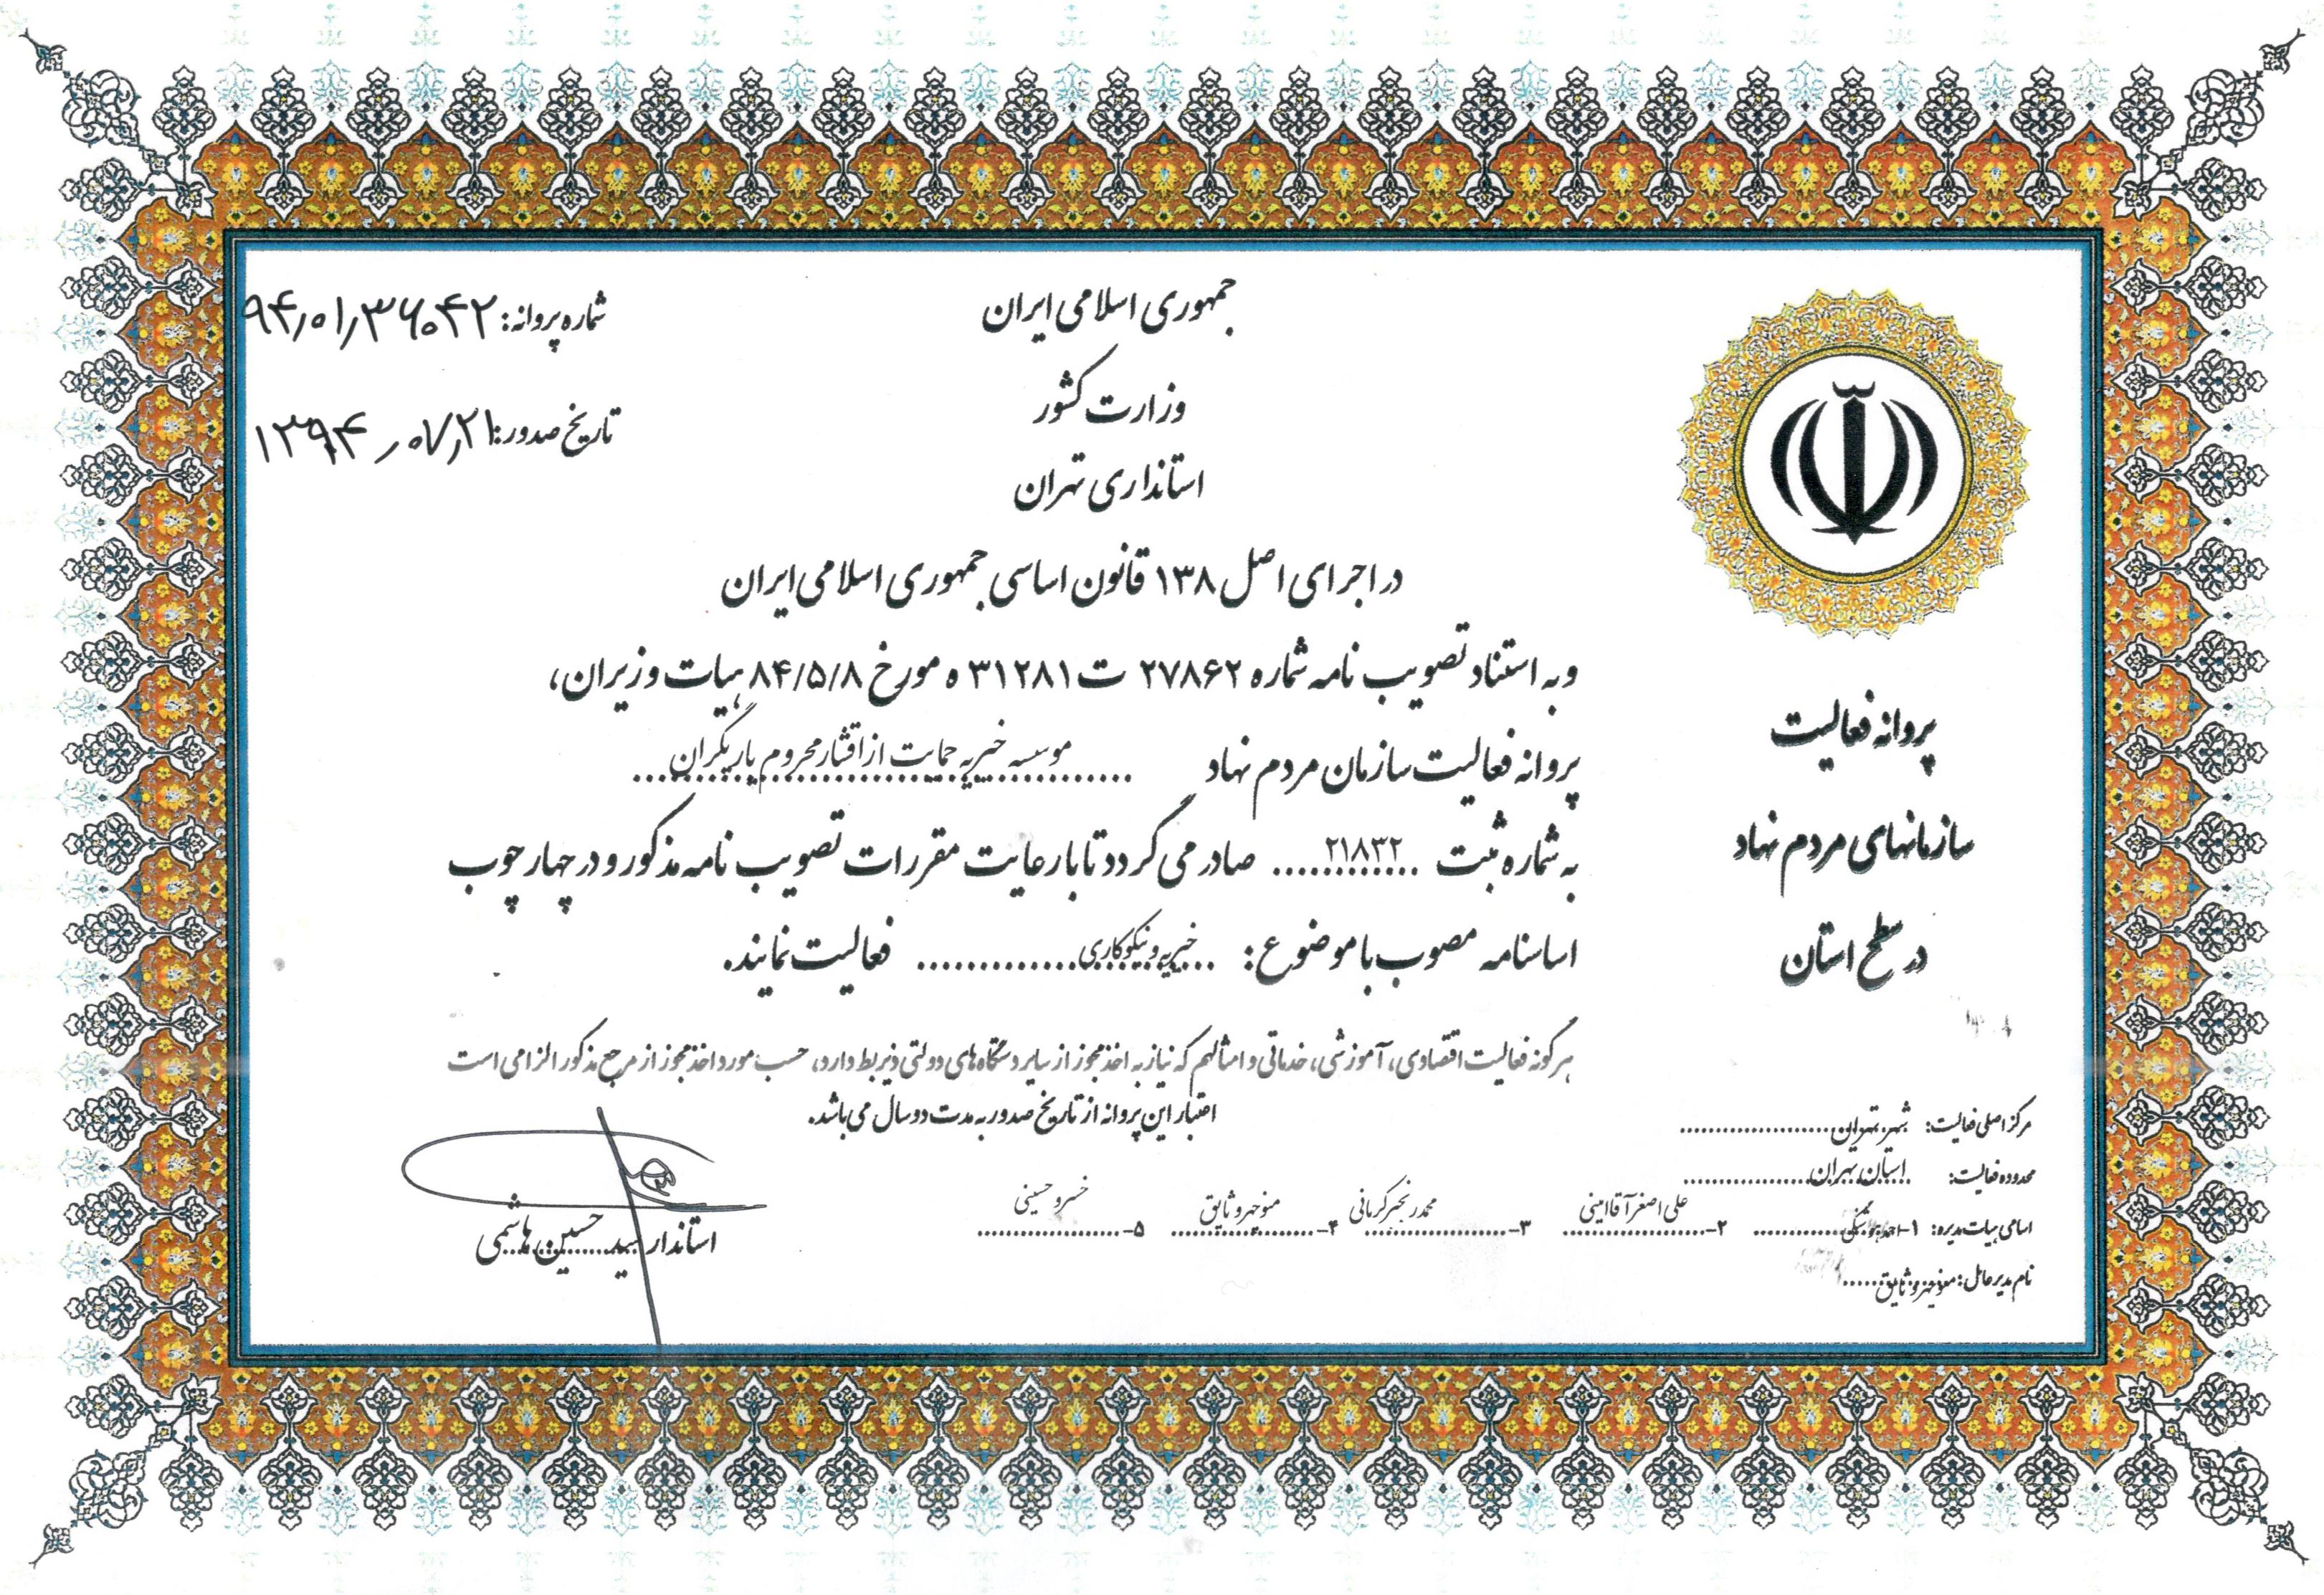 جمهوری اسلامی ایران
وزارت کشور
استانداری تهران
شماره پروانه: ۹۴٫۰۱٫۳۶۰۴۲
تاریخ صدور: ۱۳۹۴٫۰۷٫۲۱
پروانه فعالیت
سازمانهای مردم نهاد
در سطح استان
در اجرای اصل ۱۳۸ قانون اساسی جمهوری اسلامی ایران
و به استناد تصویب نامه شماره ۲۷۸۶۲ ت ۳۱۲۸۱ ه مورخ ۸۴/۵/۸ هیات وزیران،
پروانه فعالیت سازمان مردم نهاد موسسه خیریه حمایت از اقشار محروم یاریگران
به شماره ثبت ۲۱۸۳۲ صادر می گردد تا با رعایت مقررات تصویب نامه مذکور و در چهار چوب
اساسنامه مصوب با موضوع: خیریه و نیکوکاری فعالیت نمایند.
هرگونه فعالیت اقتصادی، آموزشی، خدماتی و امثالهم که نیاز به اخذ مجوز از سایر دستگاه های دولتی ذیربط دارد، حسب مورد اخذ مجوز از مرجع مذکور الزامی است
اعتبار این پروانه از تاریخ صدور به مدت دو سال می باشد.
مرکز اصلی فعالیت: شهر تهران
محدوده فعالیت: استان تهران
اسامی هیات مدیره: ۱- احمد ۲- علی اصغر آقاامینی ۳- محمد رنجبر کرمانی ۴- منوچهر وثایق ۵- خسرو حسینی
نام مدیر عامل: منوچهر وثایق
استاندار سید حسین هاشمی